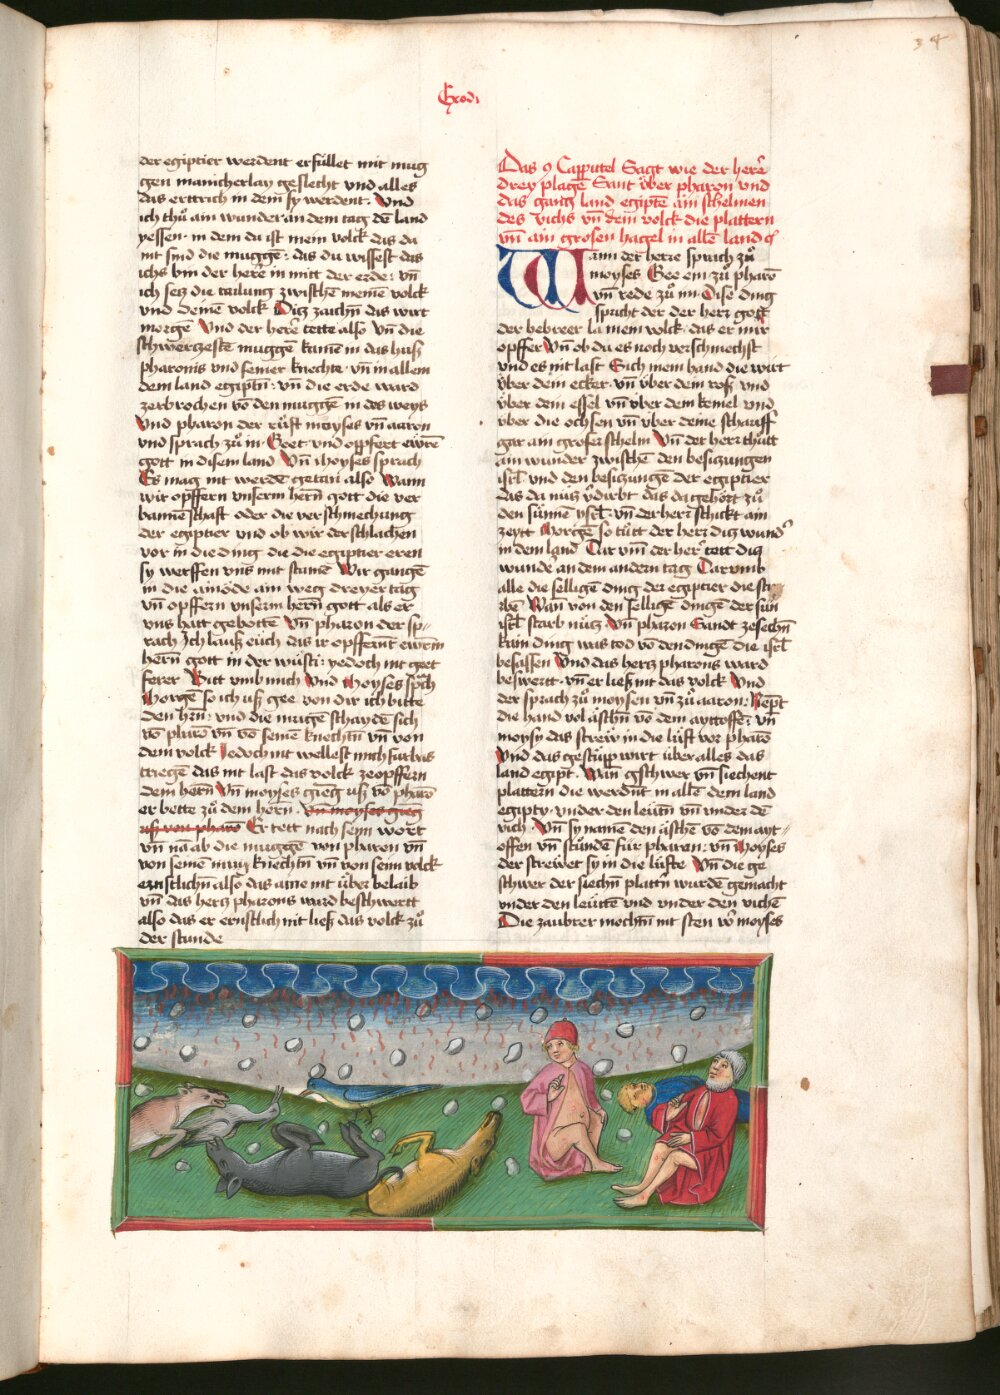 34
Exodi
der egiptier werdent erfüllet mit mug
gen manicherlay geslecht vnd alles
das ertrich in dem sy werdent. Vnd
ich thů ain wunder an dem tag dē land
yessen. in dem da ist mein volck das da
nit sind die muggē. das du wissest das
ichs bin der herē in mitt der erde. vn̄
ich setz die tailung zwischē meinē volck
vnd deinē volck Ditz zaichn̄ das wirt
morgē Vnd der herē tette also Vn̄ die
schwerzestē muggē kamē in das huß
pharonis vnd seiner knechte. vn̄ in allem
dem land egiptn̄. vn̄ die erde ward
zerbrochen vō den muggē in des weys
Vnd pharon der rüfft moyses vn̄ aaron
vnd sprach zů in Geet vnd opffert ewrē
gott in disem land Vn̄ Moyses sprach
Es mag nit werdē getan also Wann
wir opffern vnserm hern̄ gott die ver
bannē schafft oder die verschmechung
der egiptier vnd ob wir derschlachen
vor in die ding die die egiptier eren
sy werffen vns mit stainē Wir gangē
in die ainöde ain weg dreyer tag
vn̄ opffern vnserm hern̄ gott als er
vns hatt gebottē Vn̄ pharon der sp=
rach Ich lauß eüch das ir opffernt ewrm
hern̄ gott in der wüsti. yedoch nit geet
ferer Bitt vmb mich Vnd Moyses sp̄ch
Morgē so ich uß gee von dir ich bitte
den hrn̄. vnd die mugē schaydē sich
vō pharō vn̄ vō seinē knechtn̄ vn̄ von
dem volck Jedoch nit wellest mich fürbas
triegē das nit last das volck zeopffern
dem hern̄ Vn̄ moyses gieg uß vō pharō
er bette zů dem hern̄. Vn̄ moyses gieg
uß von pharō Er tett nach seim wort
vn̄ nā ab die muggē von pharon vn̄
von seinē mug knechtn̄ vn̄ von seim volck
ernstlichn̄ also das aine nit über belaib
vn̄ das herz pharons ward beschwertt
also das er ernstlich nit ließ das volck zů
der stunde
Das 9 Capputel Sagt wie der herē
drey plagē Sant über pharon vnd
das gantz land egiptē ain schelmen
des vichs vn̄ dem volck die plattern
vn̄ ain grosen hagel in allē land
Wann der herre sprach zů
moyses Gee ein zů pharō
vn̄ rede zů im Disē ding
spricht der der herr gott
der hebreer la mein volck das er mir
opffer Vn̄ ob du es noch verschmechst
vnd es nit last Sich mein hand die wirt
über dem ecker. vn̄ über dem roß vnd
über dem essel vn̄ über dem kemel vnd
über die ochsen vn̄ über deine schauff
gar ain groser schelm Vn̄ der herr thutt
ain wunder zwischē den besitzungen
isrl̄ vnd den besitzungen der egiptier
das da nütz v̄dirbt das da gehört zů
den sünnē ysrl̄. vn̄ der herr schickt ain
zeytt Morgē so tůtt der herr ditz wund
in dem land Dar vm̄ der her tett ditz
wundē an dem andern tag Darumb
alle die selligē ding der egiptier die stu
rbē Wan̄ von den selligē dingē der sün
isrl̄ starb nütz Vn̄ pharon Sandt zesechn̄
kain ding was tod vō den dingē die isrl̄
besassen Vnd das hertz pharons ward
beswertt. vn̄ er ließ nit das volck Vnd
der sprach zů moysen vn̄ zů aaron. Nempt
die hand vol äschn̄ vō dem ayttoffē. vn̄
moysy das strew in die lüft vor pharō
Vnd das gestüpp wirt über alles das
land egipt. Wan̄ gschwer vn̄ siechent
plattern die werdn̄t in allē dem land
egipty. vnder den leütn̄ vn̄ vnder dē
vich. Vn̄ sy namē den äschē vō dem ayt=
offen vn̄ stündē für pharen. vn̄ Moyses
der strewet sy in die lüfte Vn̄ die ge
schwer der siechn̄ plattn̄ wurdē gemacht
vnder den leüttē vnd vnder den vichē
Die zaubrer mochtn̄ nit sten vō moyses